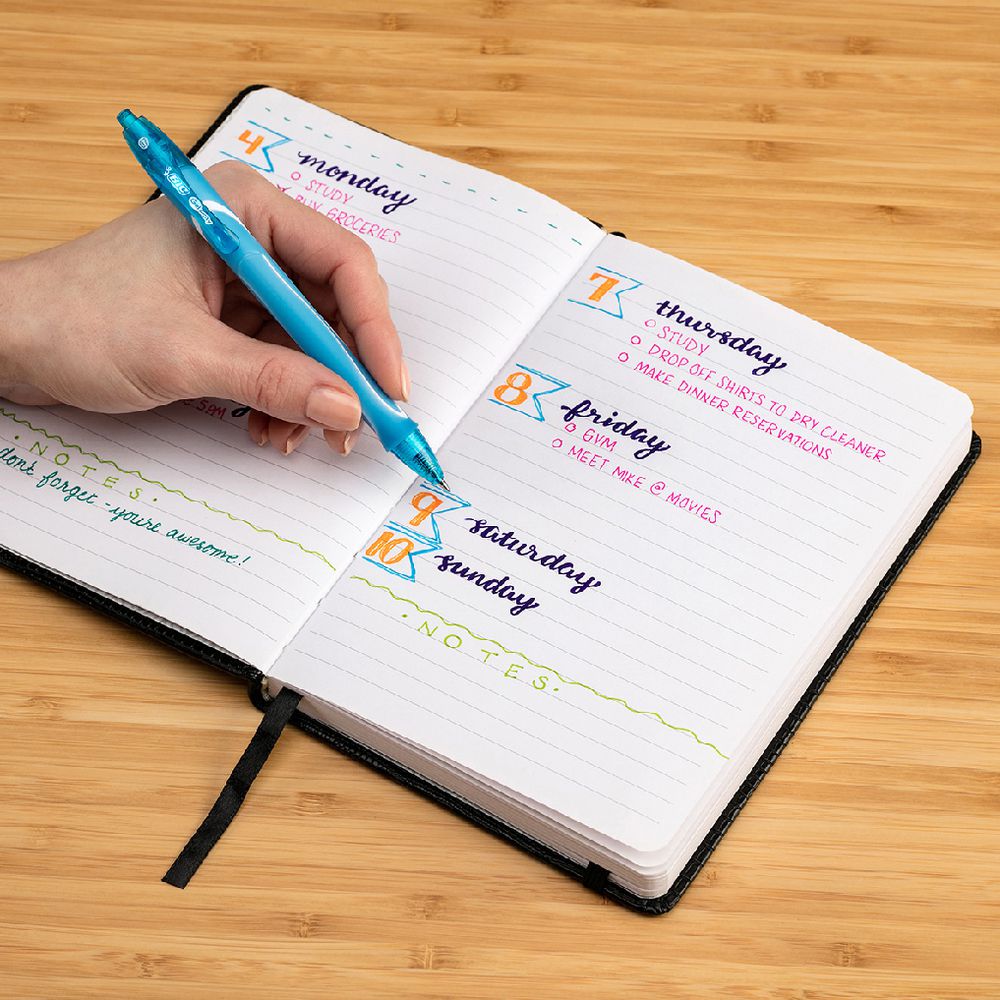 4 monday
STUDY
BUY GROCERIES
5PM
• NOTES •
dont forget - youre awesome!
7 thursday
STUDY
DROP OFF SHIRTS TO DRY CLEANER
MAKE DINNER RESERVATIONS
8 friday
GYM
MEET MIKE @ MOVIES
9 saturday
10 sunday
• NOTES •
BIC
Gelocity